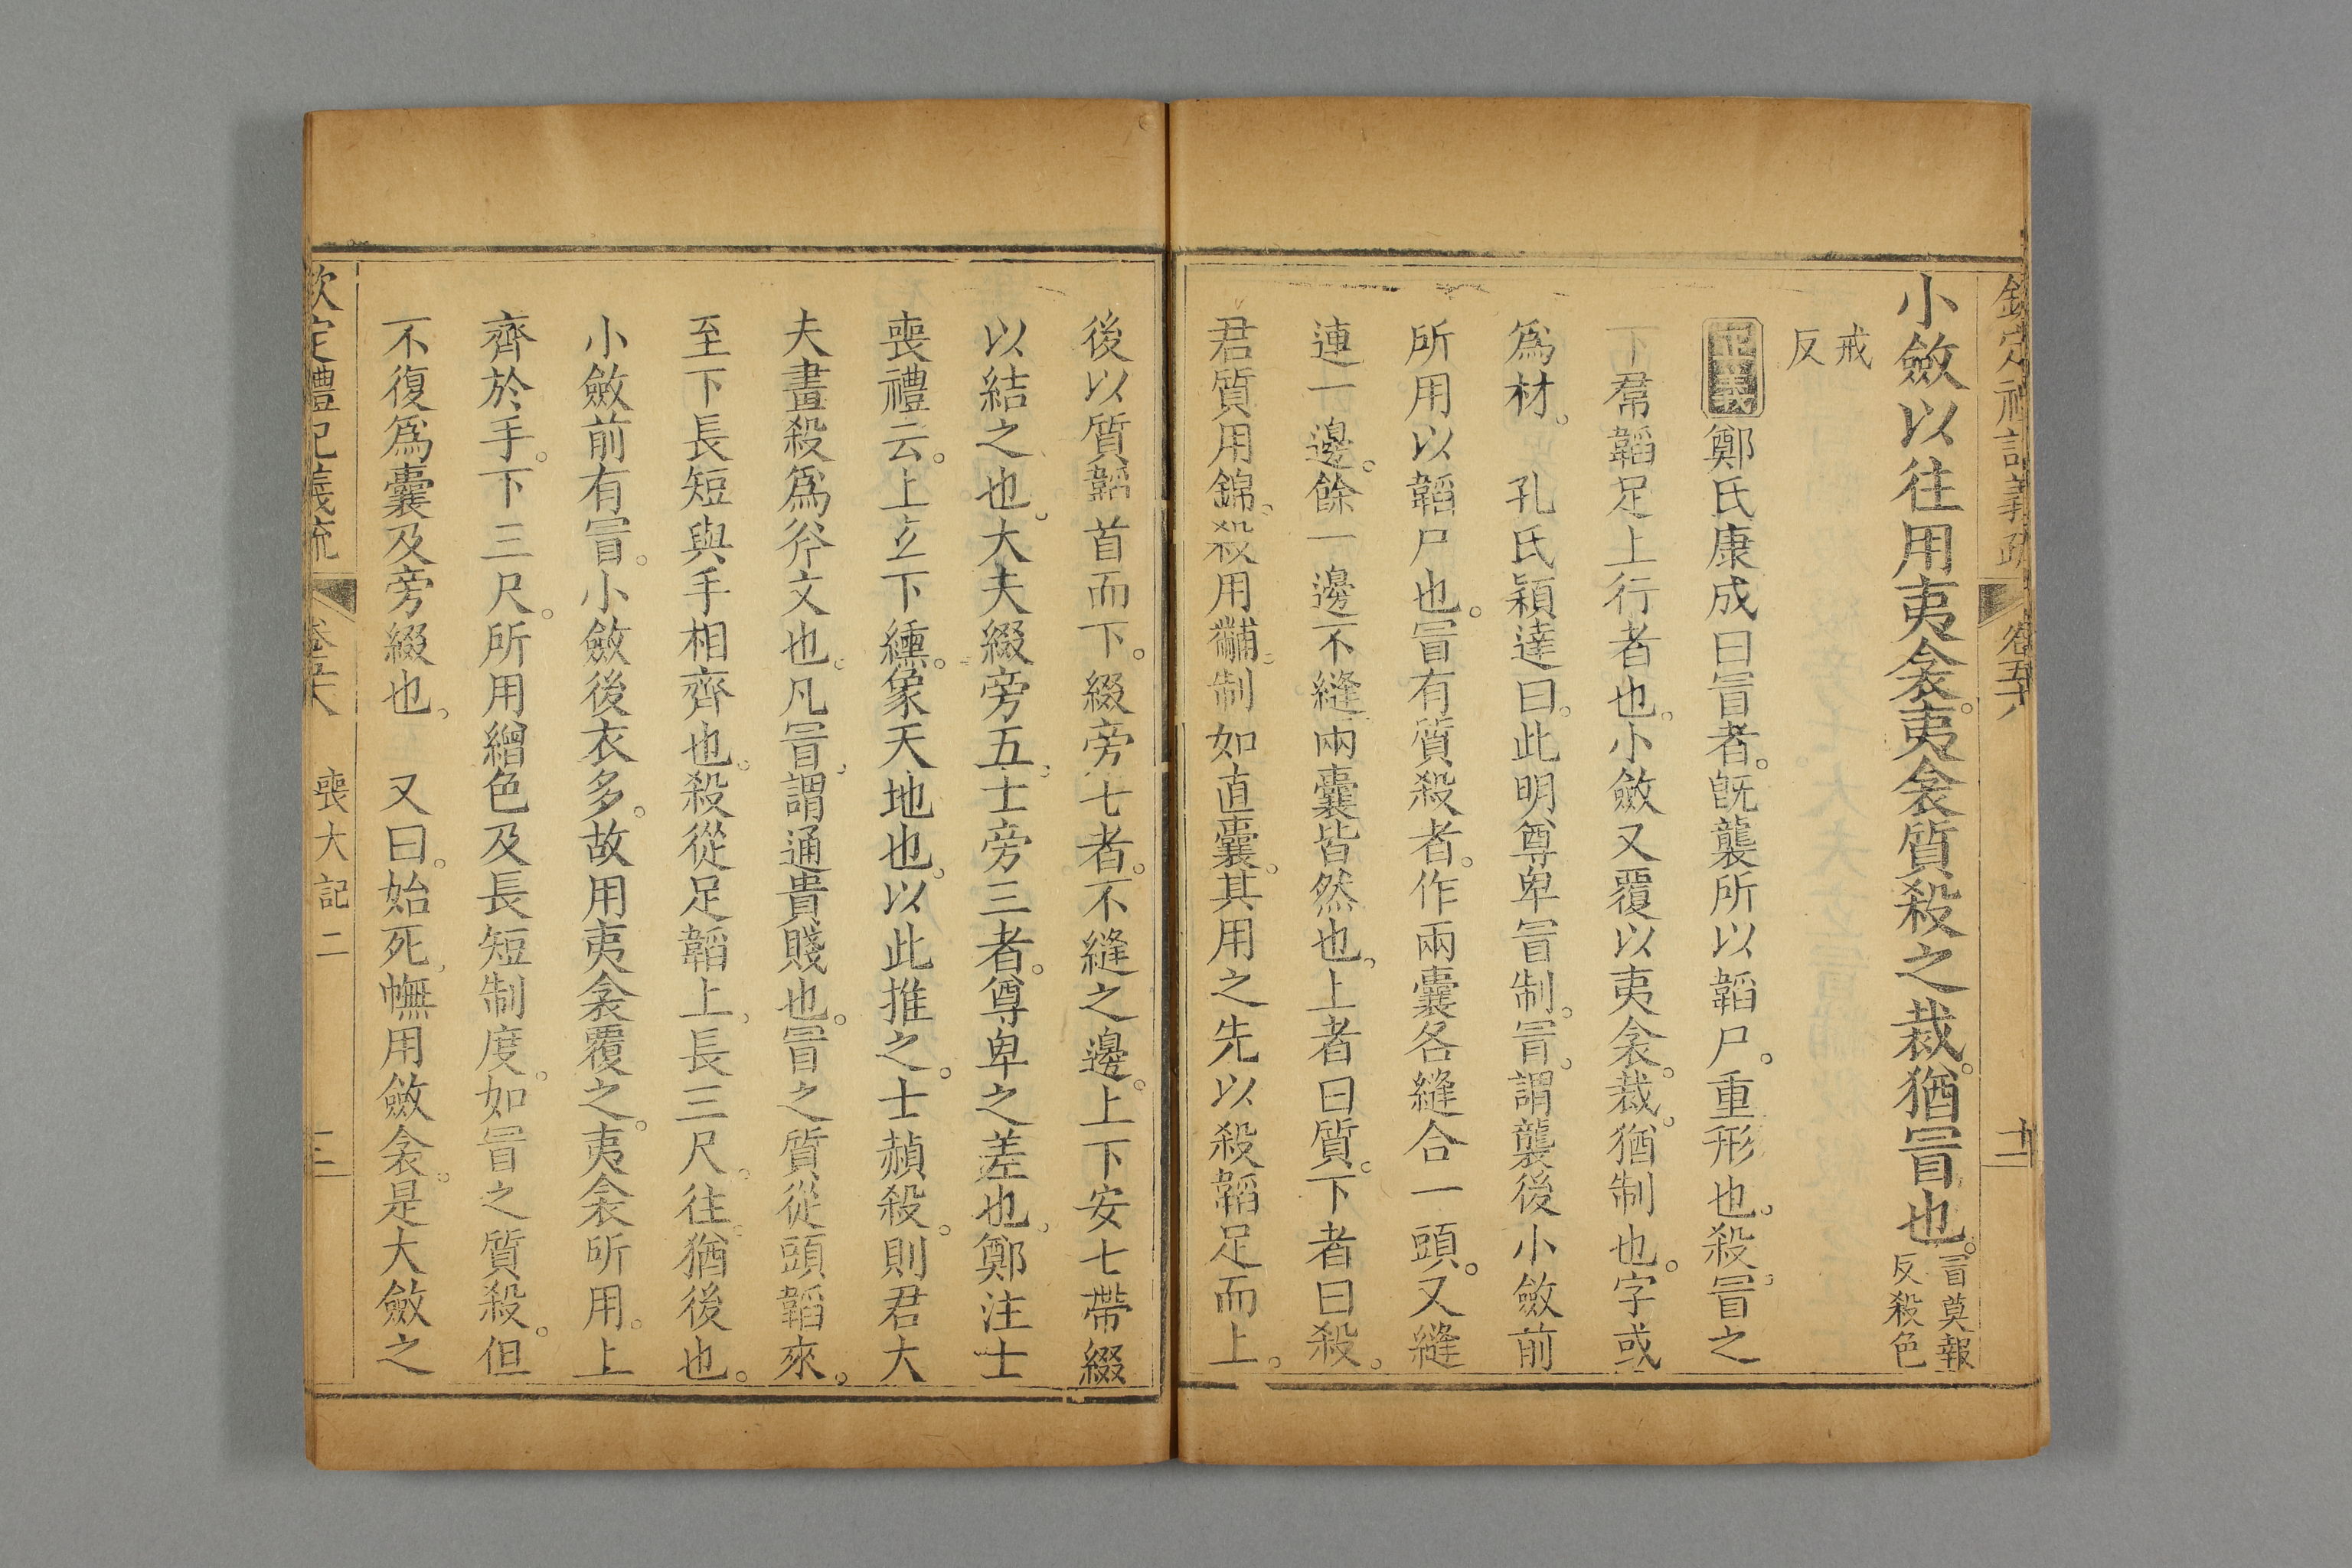 欽定禮記義疏 卷五十八 十二
小斂以往用夷衾夷衾質殺之裁猶冒也。冒莫報反殺色
戒反
正義 鄭氏康成曰冒者。旣襲所以韜尸。重形也。殺冒之
下帬韜足上行者也。小斂又覆以夷衾。裁。猶制也。字或
爲材。 孔氏穎達曰。此明尊卑冒制。冒。謂襲後小斂前
所用以韜尸也。冒有質殺者。作兩囊各縫合一頭。又縫
連一邊。餘一邊不縫。兩囊皆然也。上者曰質。下者曰殺。
君質用錦。殺用黼。制如直囊。其用之先以殺韜足而上。
後以質韜首而下。綴旁七者。不縫之邊。上下安七帶綴
以結之也。大夫綴旁五。士旁三者。尊卑之差也。鄭注士
喪禮云。上玄下纁。象天地也。以此推之。士赬殺。則君大
夫畫殺爲斧文也。凡冒。謂通貴賤也。冒之質從頭韜來。
至下長短與手相齊也。殺從足韜上。長三尺。往。猶後也。
小斂前有冒。小斂後衣多。故用夷衾覆之。夷衾所用。上
齊於手。下三尺。所用繒色及長短制度。如冒之質殺。但
不復爲囊及旁綴也。 又曰。始死。幠用斂衾。是大斂之
欽定禮記義疏 卷五十八 喪大記二